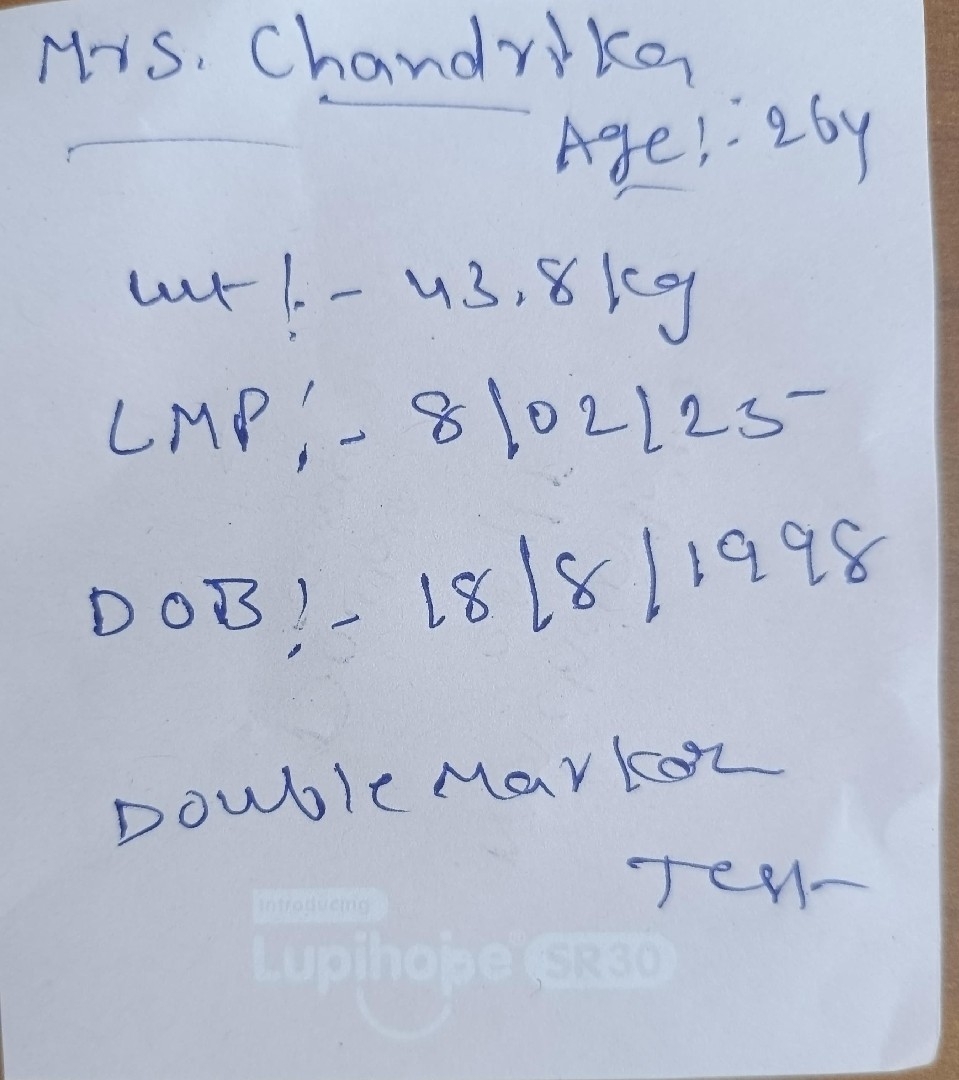 Mrs. Chandrika
Age:- 26y
wt:- 43.8 kg
LMP:- 8/02/25
DOB:- 18/8/1998
Double Marker
Test
Introducing
Lupihope SR30